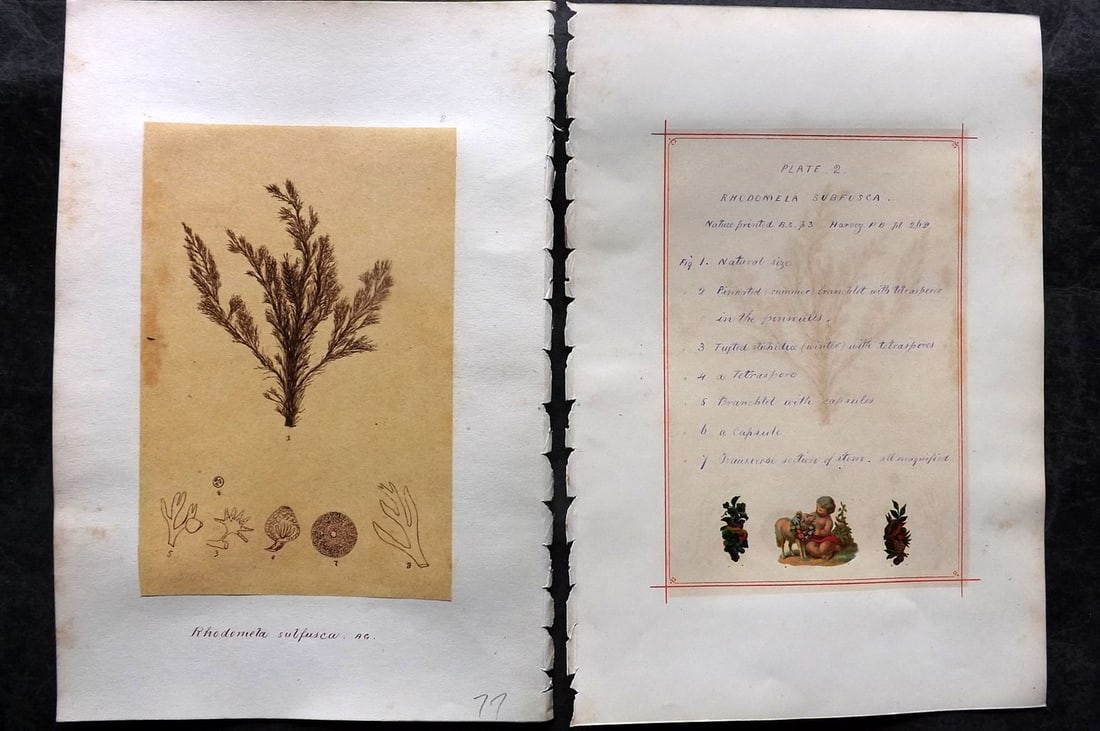 2
1
6
5 3 4 7 2
Rhodomela subfusca. AG.
77
PLATE. 2.
RHODOMELA SUBFUSCA.
Nature printed B.S. p3 Harvey P.B pl 262
Fig 1. Natural size
2 Pinnated (summer) branchlet with tetraspores
in the pinnules.
3 Tufted stichidia (winter) with tetraspores
4 a Tetraspore
5 Branchlet with capsules
6 a Capsule
7 Transverse section of stem. all magnified